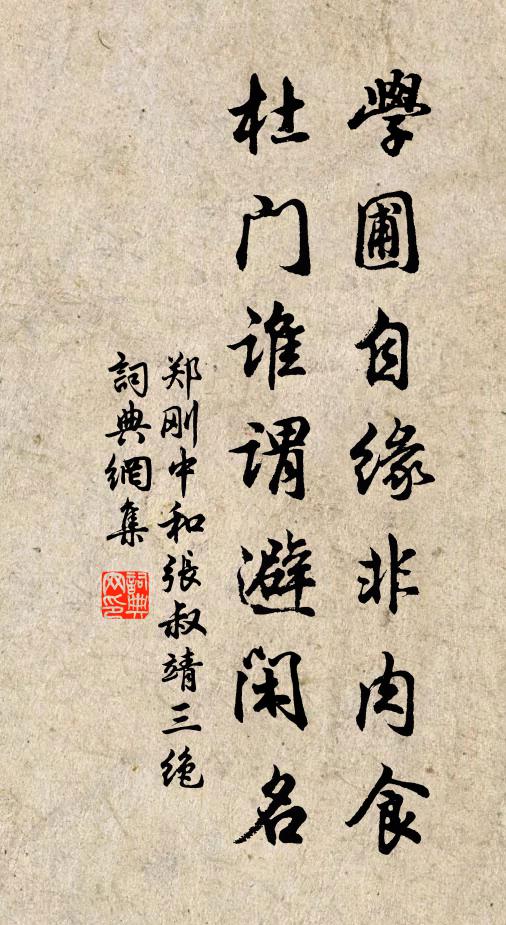 學圃自緣非肉食
杜门誰謂避闲名
郑刚中和張叔靖三绝
詞典網集
詞典网印